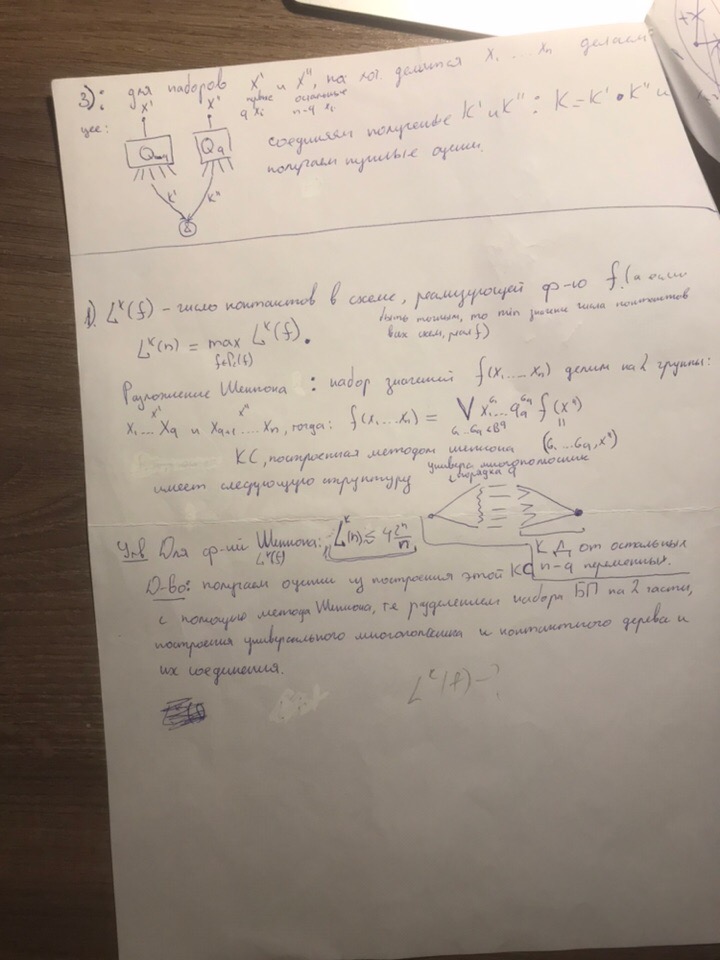 3): для наборов x' и x", на кот. делится x₁ ... xₙ делаем
первые q xᵢ остальные n-q xᵢ
щее:
x' x'
Q Q_q
соединяем полученные K' и K" : K = K' • K" и
получаем нужные оценки.
K' K"
1). L^K(f) – число контактов в схеме, реализующей ф-ю f. (а если
быть точным, то min значение числа контактов
L^K(n) = max L^K(f).
Разложение Шеннона : набор значений f(x₁ ... xₙ) делим на 2 группы:
x' x"
x₁ ... x_q и x_{q+1} ... xₙ, тогда: f(x₁ ... xₙ) = ∨ f(x")
(σ₁ ... σ_q, x")
КС, построенная методом Шеннона
имеет следующую структуру
порядка q
Утв Для ф-ий Шеннона: L^K(n) ≲ 4 2ⁿ/n
L^K(f)
КД от остальных
n-q переменных.
Д-во: получаем оценки из построения этой КС
с помощью метода Шеннона, т.е разделением набора БП на 2 части,
построения универсального многополюсника и контактного дерева и
их соединения.
L^K(f) – ?